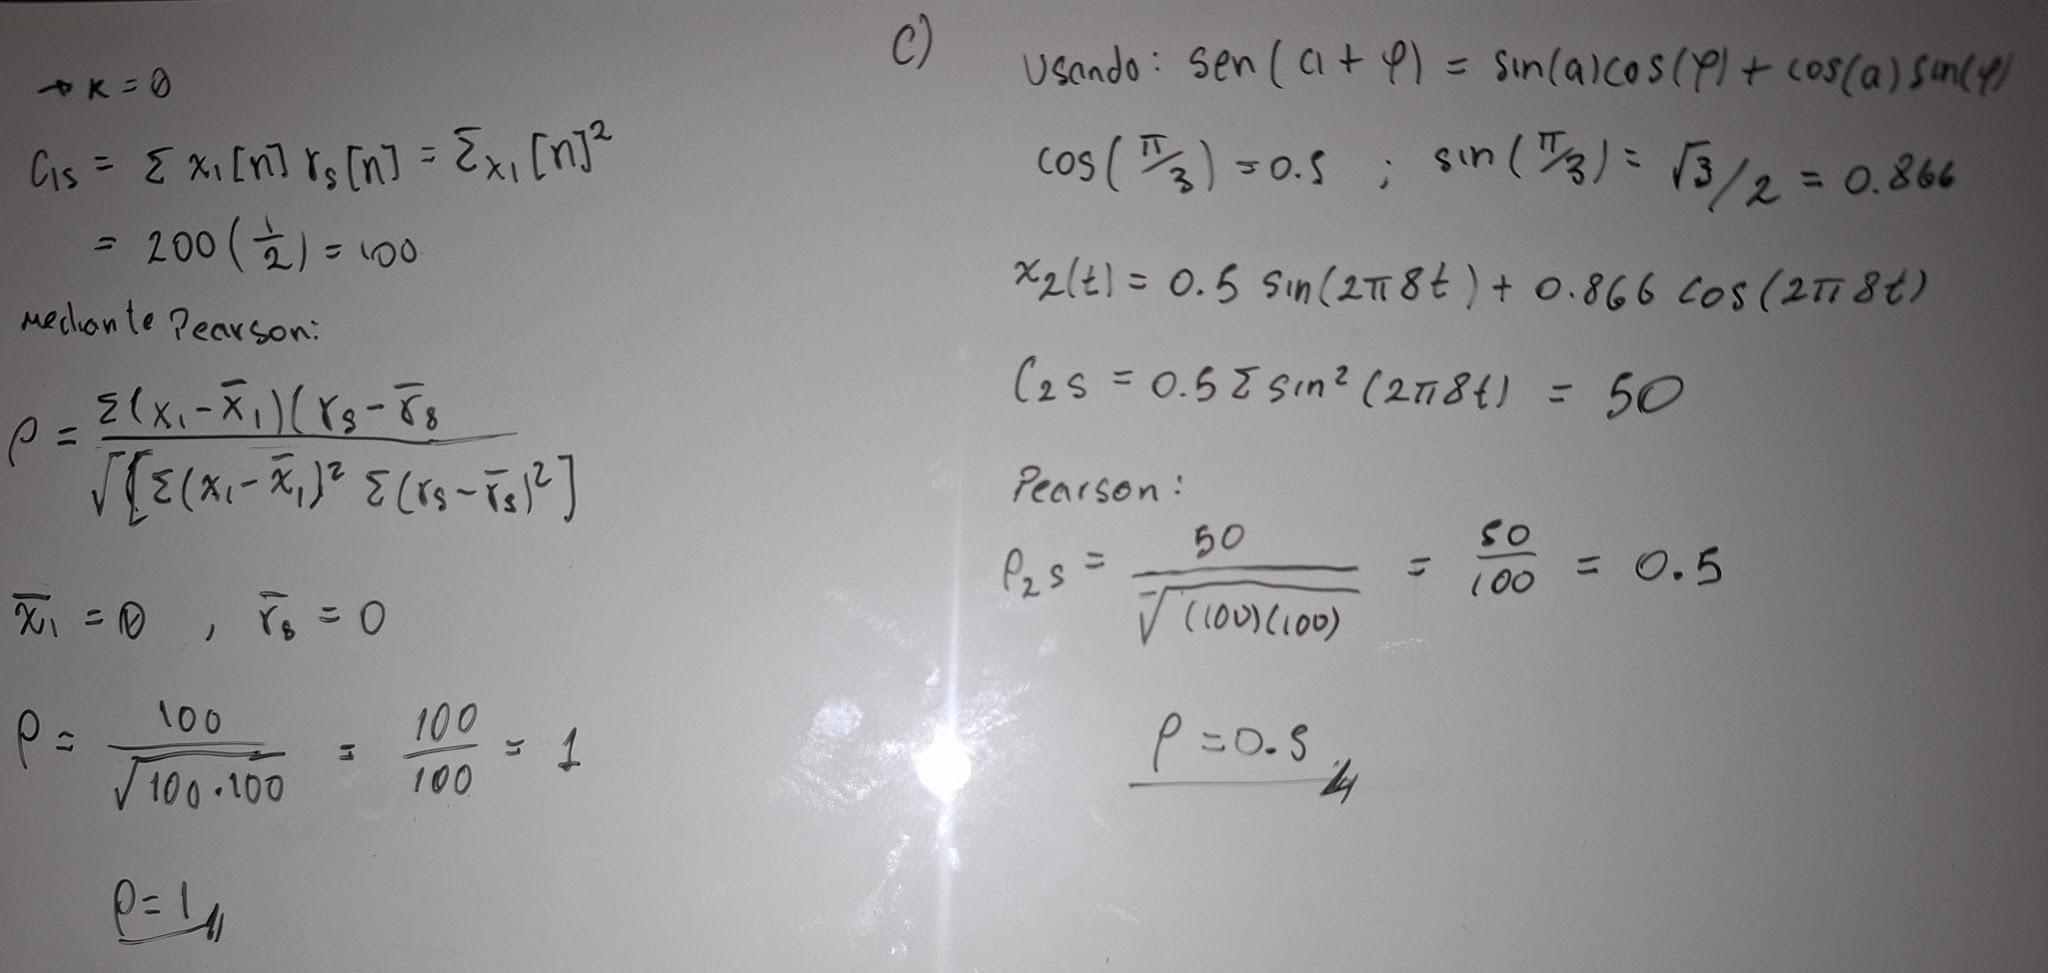 → k = 0
C1s = Σ x1[n] rs[n] = Σx1[n]²
= 200 (1/2) = 100
mediante Pearson:
ρ = Σ(x1 - x̄1)(rs - r̄s / √[Σ(x1 - x̄1)² Σ(rs - r̄s)²]
x̄1 = 0 , r̄s = 0
ρ = 100 / √100·100 = 100/100 = 1
ρ = 1
c)
Usando: sen(a + φ) = sin(a)cos(φ) + cos(a)sin(φ)
cos(π/3) = 0.5 ; sin(π/3) = √3/2 = 0.866
x2(t) = 0.5 sin(2π8t) + 0.866 cos(2π8t)
C2s = 0.5 Σ sin²(2π8t) = 50
Pearson:
ρ2s = 50 / √(100)(100) = 50/100 = 0.5
ρ = 0.5